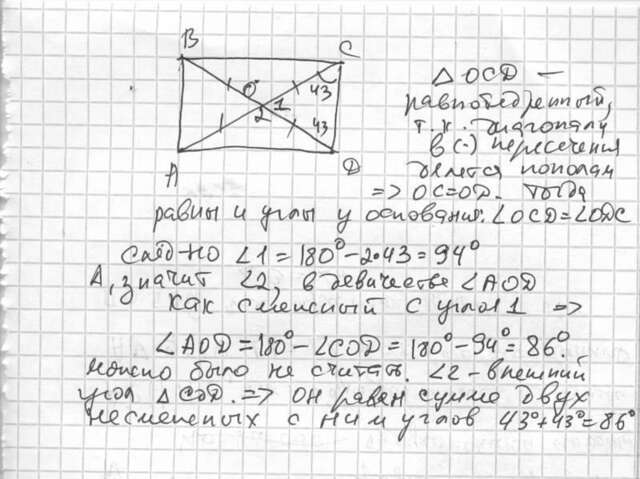 B
C
O
1
2
43
43
A
D
△OCD —
равнобедренный,
т.к. диагонали
в (·) пересечения
делятся пополам
=> OC=OD. Тогда
равны и углы у основания: ∠OCD=∠ODC
След-но ∠1 = 180° - 2•43 = 94°
А, значит ∠2, в девичестве ∠AOD
как смежный с углом 1 =>
∠AOD = 180° - ∠COD = 180° - 94° = 86°.
можно было не считать. ∠2 - внешний
угол △COD. => он равен сумме двух
несмежных с ним углов 43°+43°=86°